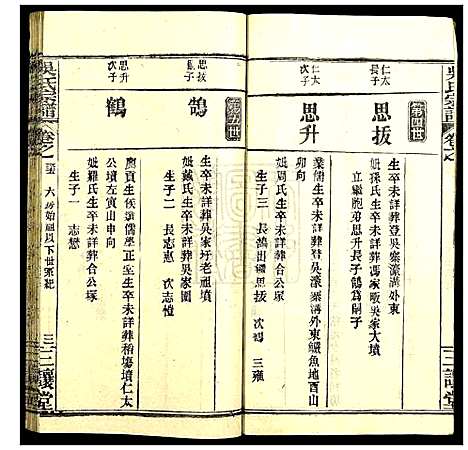 吳氏宗譜
卷之
三讓堂
第四世
仁太
長子
思拔
生卒未詳葬登吳寨濠溝外東
妣孫氏生卒未詳葬馮家畈吳家大墳
立繼胞弟思升長子鵠為嗣子
仁太
次子
思升
業儒生卒未詳葬登吳濠溝外東鱷魚地酉山
卯向
妣周氏生卒未詳葬合公塚
生子三 長鵠出繼思拔 次鶴 三雍
第五世
思拔
嗣子
鵠
生卒未詳葬吳家圩老祖墳
妣戴氏生卒未詳葬吳家園
生子二 長志惠 次志愷
思升
次子
鶴
廩貢生候選儒學正堂生卒未詳葬稻場墳仁太
公墳左寅山申向
妣羅氏生卒未詳葬合公塚
生子一 志懋
吳氏宗譜
卷之
六房始祖以下世系紀
三讓堂